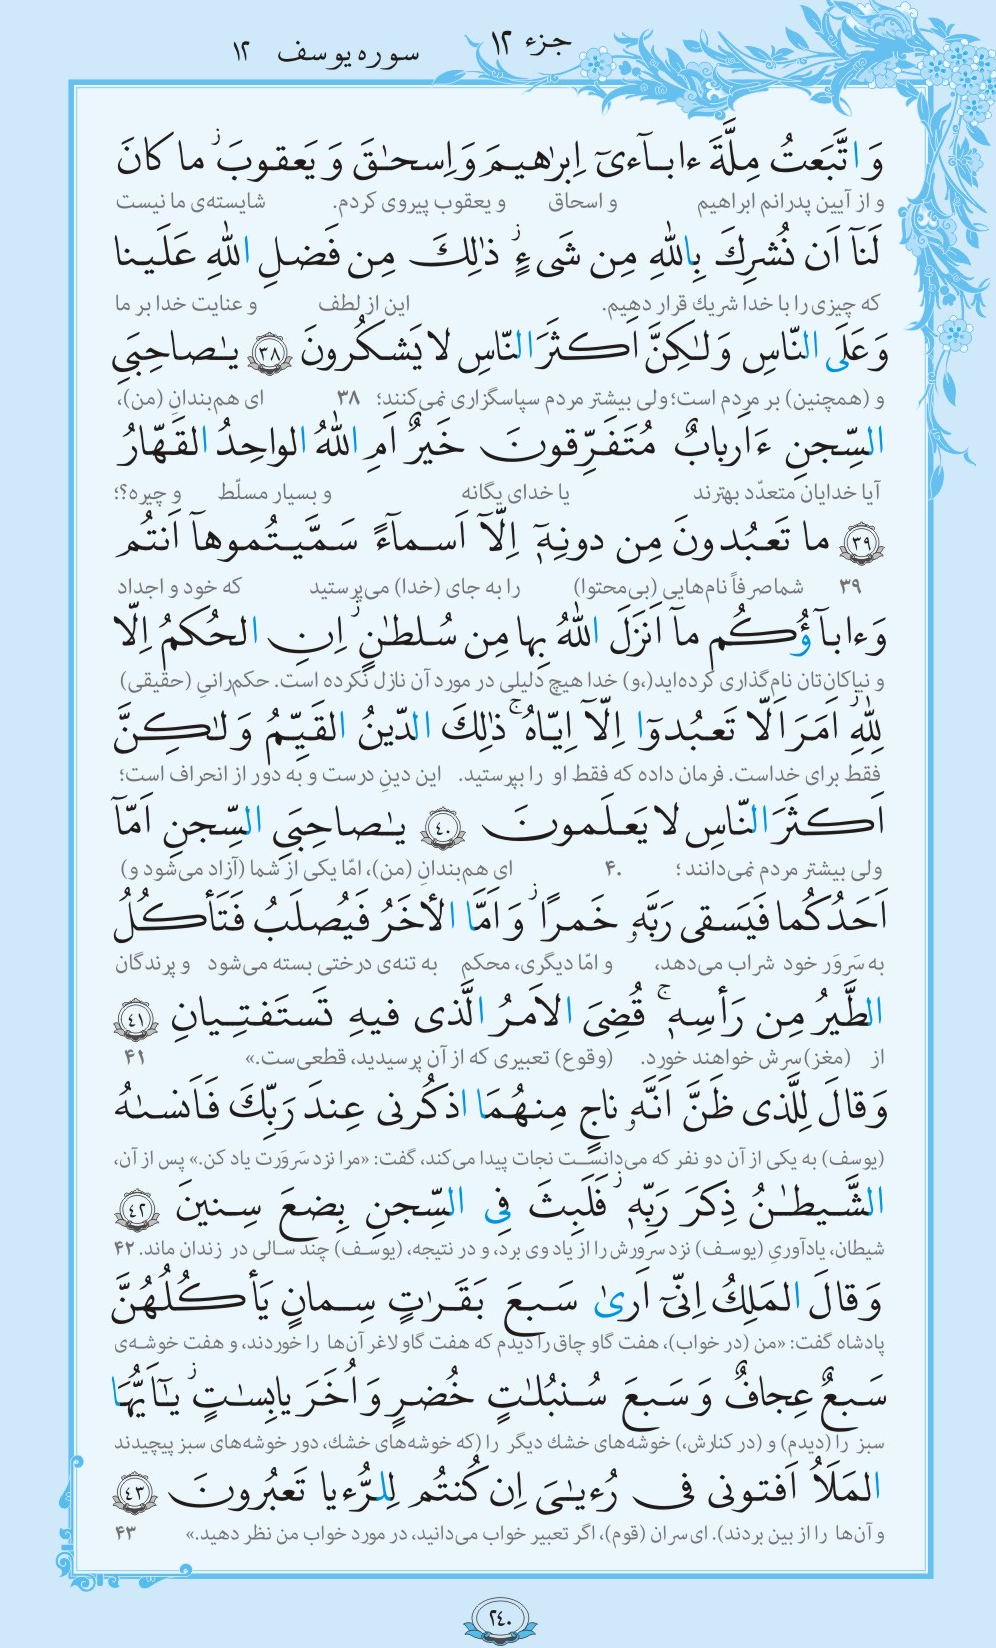 جزء ۱۲
سوره یوسف ۱۲
وَ اتَّبَعتُ مِلَّةَ ءابآءیٓ اِبرٰهیمَ وَ اِسحٰقَ وَ یَعقوبَ ۚ ما کانَ
و از آیین پدرانم ابراهیم و اسحاق و یعقوب پیروی کردم. شایسته‌ی ما نیست
لَنآ اَن نُشرِكَ بِاللّٰهِ مِن شَیءٍ ۚ ذٰلِكَ مِن فَضلِ اللّٰهِ عَلَینا
که چیزی را با خدا شریك قرار دهیم. این از لطف و عنایت خدا بر ما
وَ عَلَی النّاسِ وَ لٰکِنَّ اَکثَرَ النّاسِ لا یَشکُرونَ ﴿٣٨﴾ یٰصاحِبَیِ
و (همچنین) بر مردم است؛ ولی بیشتر مردم سپاسگزاری نمی‌کنند؛ ۳۸ ای هم‌بندانِ (من)،
السِّجنِ ءَاَربابٌ مُتَفَرِّقونَ خَیرٌ اَمِ اللّٰهُ الواحِدُ القَهّارُ
آیا خدایان متعدّد بهترند یا خدای یگانه و بسیار مسلّط و چیره؟؛
﴿٣٩﴾ ما تَعبُدونَ مِن دونِهٖٓ اِلّآ اَسمآءً سَمَّیتُموهآ اَنتُم
۳۹ شما صرفاً نام‌هایی (بی‌محتوا) را به جای (خدا) می‌پرستید که خود و اجداد
وَ ءابآؤُکُم مآ اَنزَلَ اللّٰهُ بِها مِن سُلطٰنٍ ۚ اِنِ الحُکمُ اِلّا
و نیاکان‌تان نام‌گذاری کرده‌اید(،و) خدا هیچ دلیلی در مورد آن نازل نکرده است. حکم‌رانیِ (حقیقی)
لِلّٰهِ ۚ اَمَرَ اَلّا تَعبُدوٓا اِلّآ اِیّاهُ ۚ ذٰلِكَ الدّینُ القَیِّمُ وَ لٰکِنَّ
فقط برای خداست. فرمان داده که فقط او را بپرستید. این دینِ درست و به دور از انحراف است؛
اَکثَرَ النّاسِ لا یَعلَمونَ ﴿٤٠﴾ یٰصاحِبَیِ السِّجنِ اَمّآ
ولی بیشتر مردم نمی‌دانند؛ ۴۰ ای هم‌بندانِ (من)، امّا یکی از شما (آزاد می‌شود و)
اَحَدُکُما فَیَسقی رَبَّهٗ خَمرًا ۚ وَ اَمَّا الأخَرُ فَیُصلَبُ فَتَأکُلُ
به سَروَر خود شراب می‌دهد، و امّا دیگری، محکم به تنه‌ی درختی بسته می‌شود و پرندگان
الطَّیرُ مِن رَأسِهٖ ۚ قُضِیَ الاَمرُ الَّذی فیهِ تَستَفتِیانِ ﴿٤١﴾
از (مغز) سرش خواهند خورد. (وقوع) تعبیری که از آن پرسیدید، قطعی‌ست.» ۴۱
وَ قالَ لِلَّذی ظَنَّ اَنَّهٗ ناجٍ مِنهُمَا اذکُرنی عِندَ رَبِّكَ فَاَنسٰهُ
(یوسف) به یکی از آن دو نفر که می‌دانست نجات پیدا می‌کند، گفت: «مرا نزد سَروَرت یاد کن.» پس از آن،
الشَّیطٰنُ ذِکرَ رَبِّهٖ ۚ فَلَبِثَ فِی السِّجنِ بِضعَ سِنینَ ﴿٤٢﴾
شیطان، یادآوریِ (یوسف) نزد سرورش را از یاد وی برد، و در نتیجه، (یوسف) چند سالی در زندان ماند. ۴۲
وَ قالَ المَلِكُ اِنّیٓ اَریٰ سَبعَ بَقَرٰتٍ سِمانٍ یَأکُلُهُنَّ
پادشاه گفت: «من (در خواب)، هفت گاو چاق را دیدم که هفت گاو لاغر آن‌ها را خوردند، و هفت خوشه‌ی
سَبعٌ عِجافٌ وَ سَبعَ سُنبُلٰتٍ خُضرٍ وَ اُخَرَ یابِسٰتٍ ۚ یٰٓاَیُّهَا
سبز را (دیدم) و (در کنارش،) خوشه‌های خشك دیگر را (که خوشه‌های خشك، دور خوشه‌های سبز پیچیدند
المَلَاُ اَفتونی فی رُءیٰیَ اِن کُنتُم لِلرُّءیا تَعبُرونَ ﴿٤٣﴾
و آن‌ها را از بین بردند). ای سران (قوم)، اگر تعبیر خواب می‌دانید، در مورد خواب من نظر دهید.» ۴۳
٢٤٠